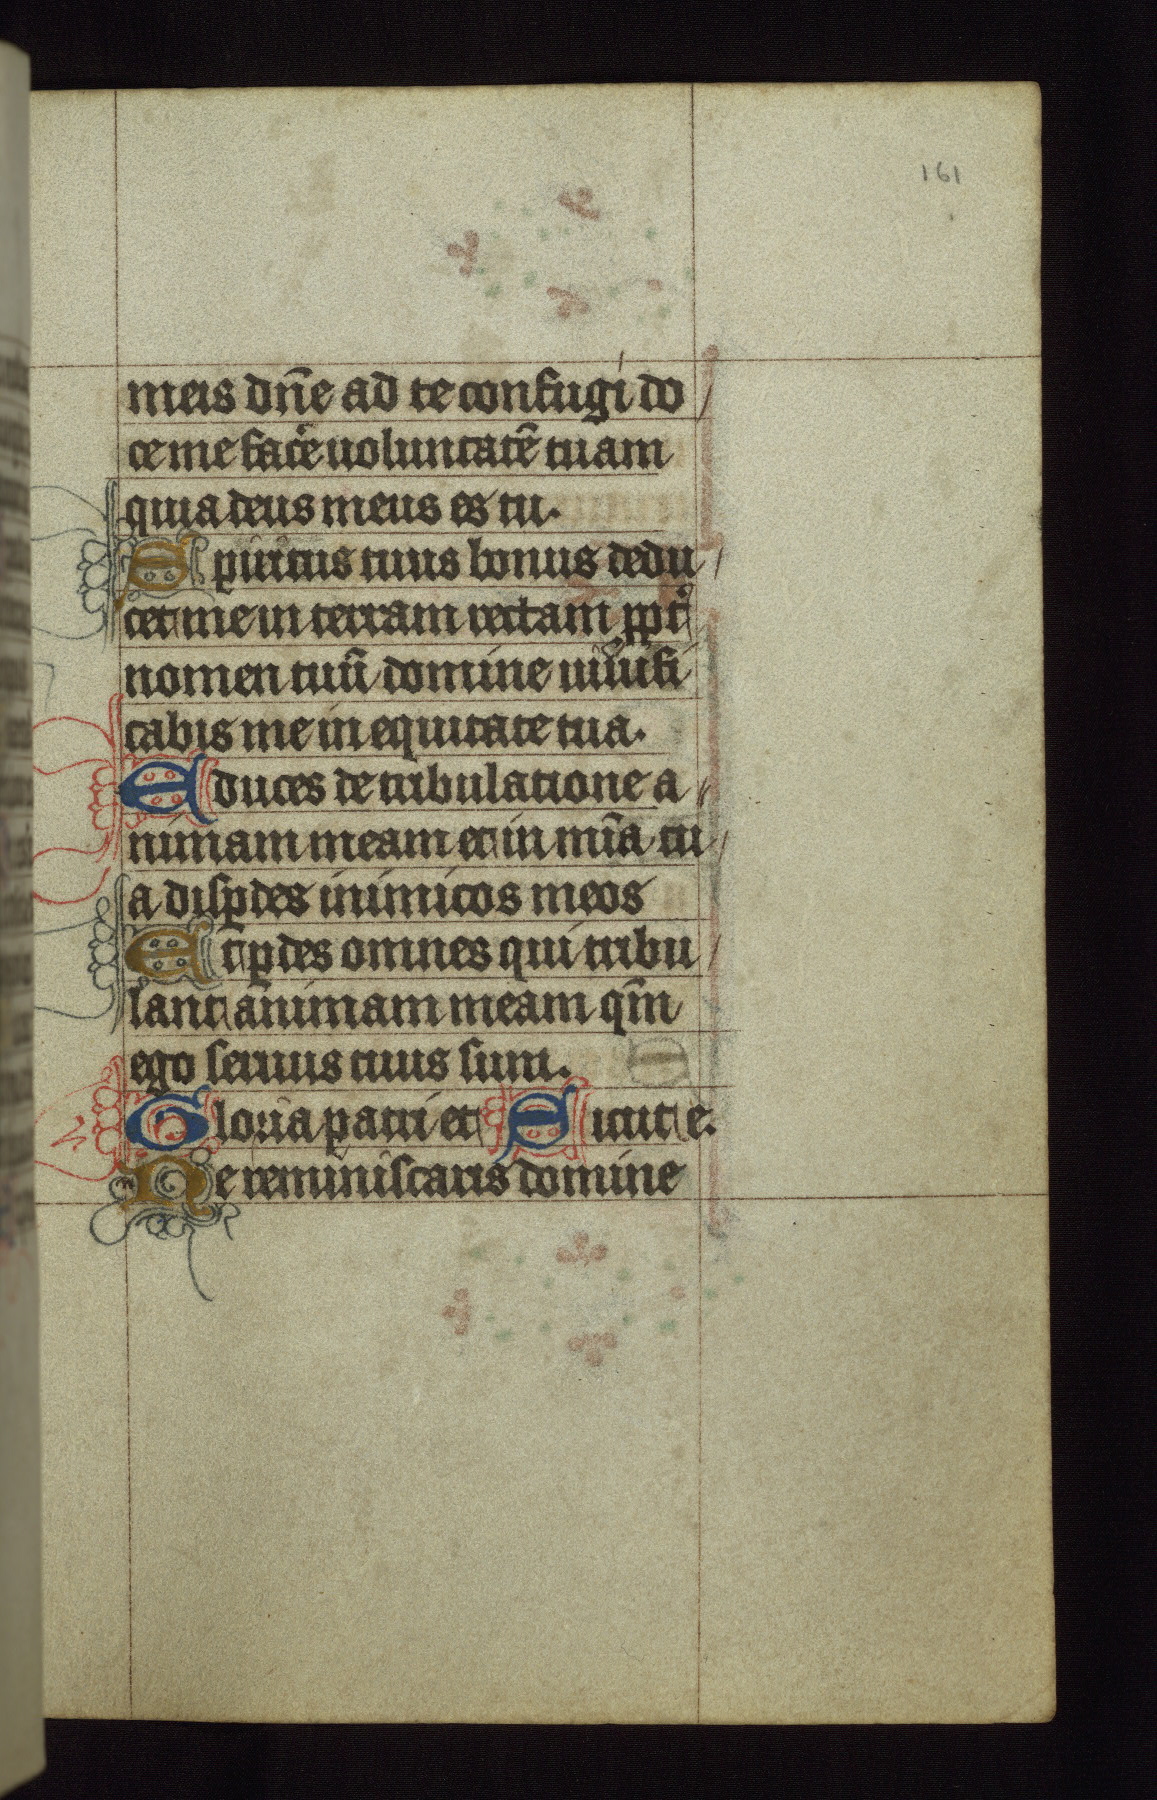 161
meis dn̄e ad te confugi do
ce me fac̄e uoluntatē tuam
quia deus meus es tu.
Spiritus tuus bonus dedu
cet me in terram rectam ꝓpt̉
nomen tuū domine uiuifi
cabis me in equitate tua.
Educes de tribulatione a
nimam meam et in mīa tu
a disꝑdes inimicos meos
Et ꝑdes omnes qui tribu
lant animam meam qm̄
ego seruus tuus sum.
Gloria patri et Sicut e.
Ne reminiscaris domine